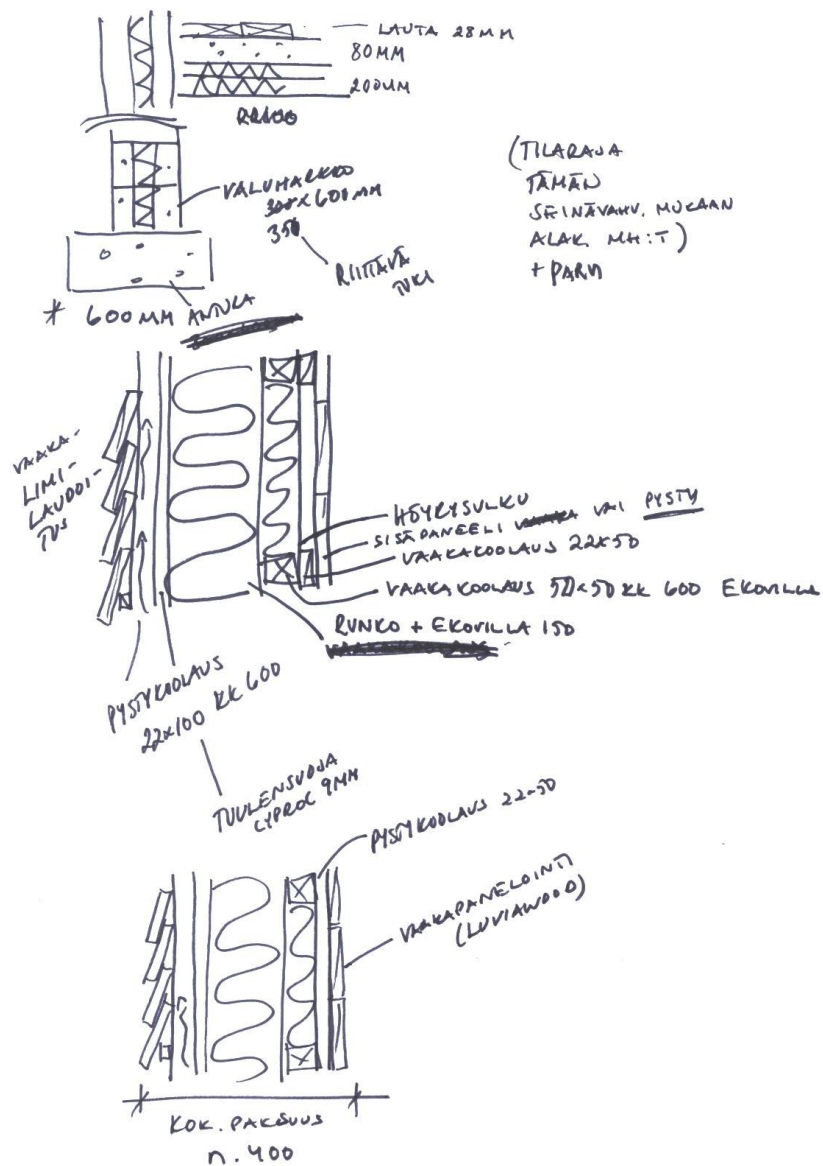 LAUTA 28MM
80MM
200MM
VALUHARKKO
350
600MM
RIITTÄVÄ
TUKI
(TILARAJA
TÄMÄN
SEINÄVAHV. MUKAAN
ALAK. MH:T)
* 600MM ANTURA
VAAKA-
LIMI-
LAUDOI-
TUS
HÖYRYSULKU
SISÄPANEELI VAAKA VAI PYSTY
VAAKAKOOLAUS 22x50
VAAKAKOOLAUS 50x50 KK 600 EKOVILLA
RUNKO + EKOVILLA 150
PYSTYKOOLAUS
22x100 KK 600
TUULENSUOJA
GYPROC 9MM
PYSTYKOOLAUS 22x50
VAAKAPANELOINTI
(LUVIAWOOD)
KOK. PAKSUUS
n. 400